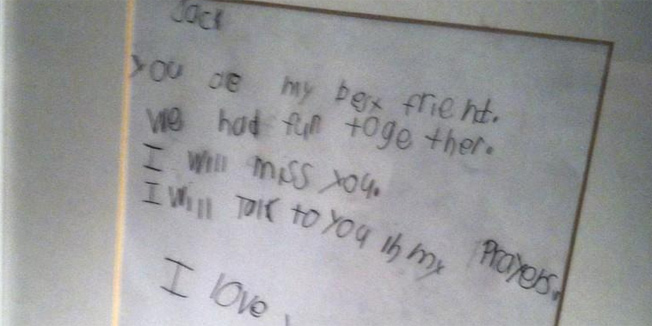 Jack
You are my best frieht.
We had fun together.
I will miss you.
I will Talk to you ih my Prayers.
I love